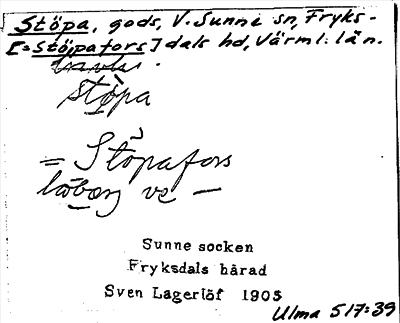 Stöpa, gods, V. Sunne sn, Fryks-
[= Stöpafors] dals hd, Värml. län.
stöpa
= Stöpafors
Sunne socken
Fryksdals härad
Sven Lagerlöf 1905
Ulma 517:39